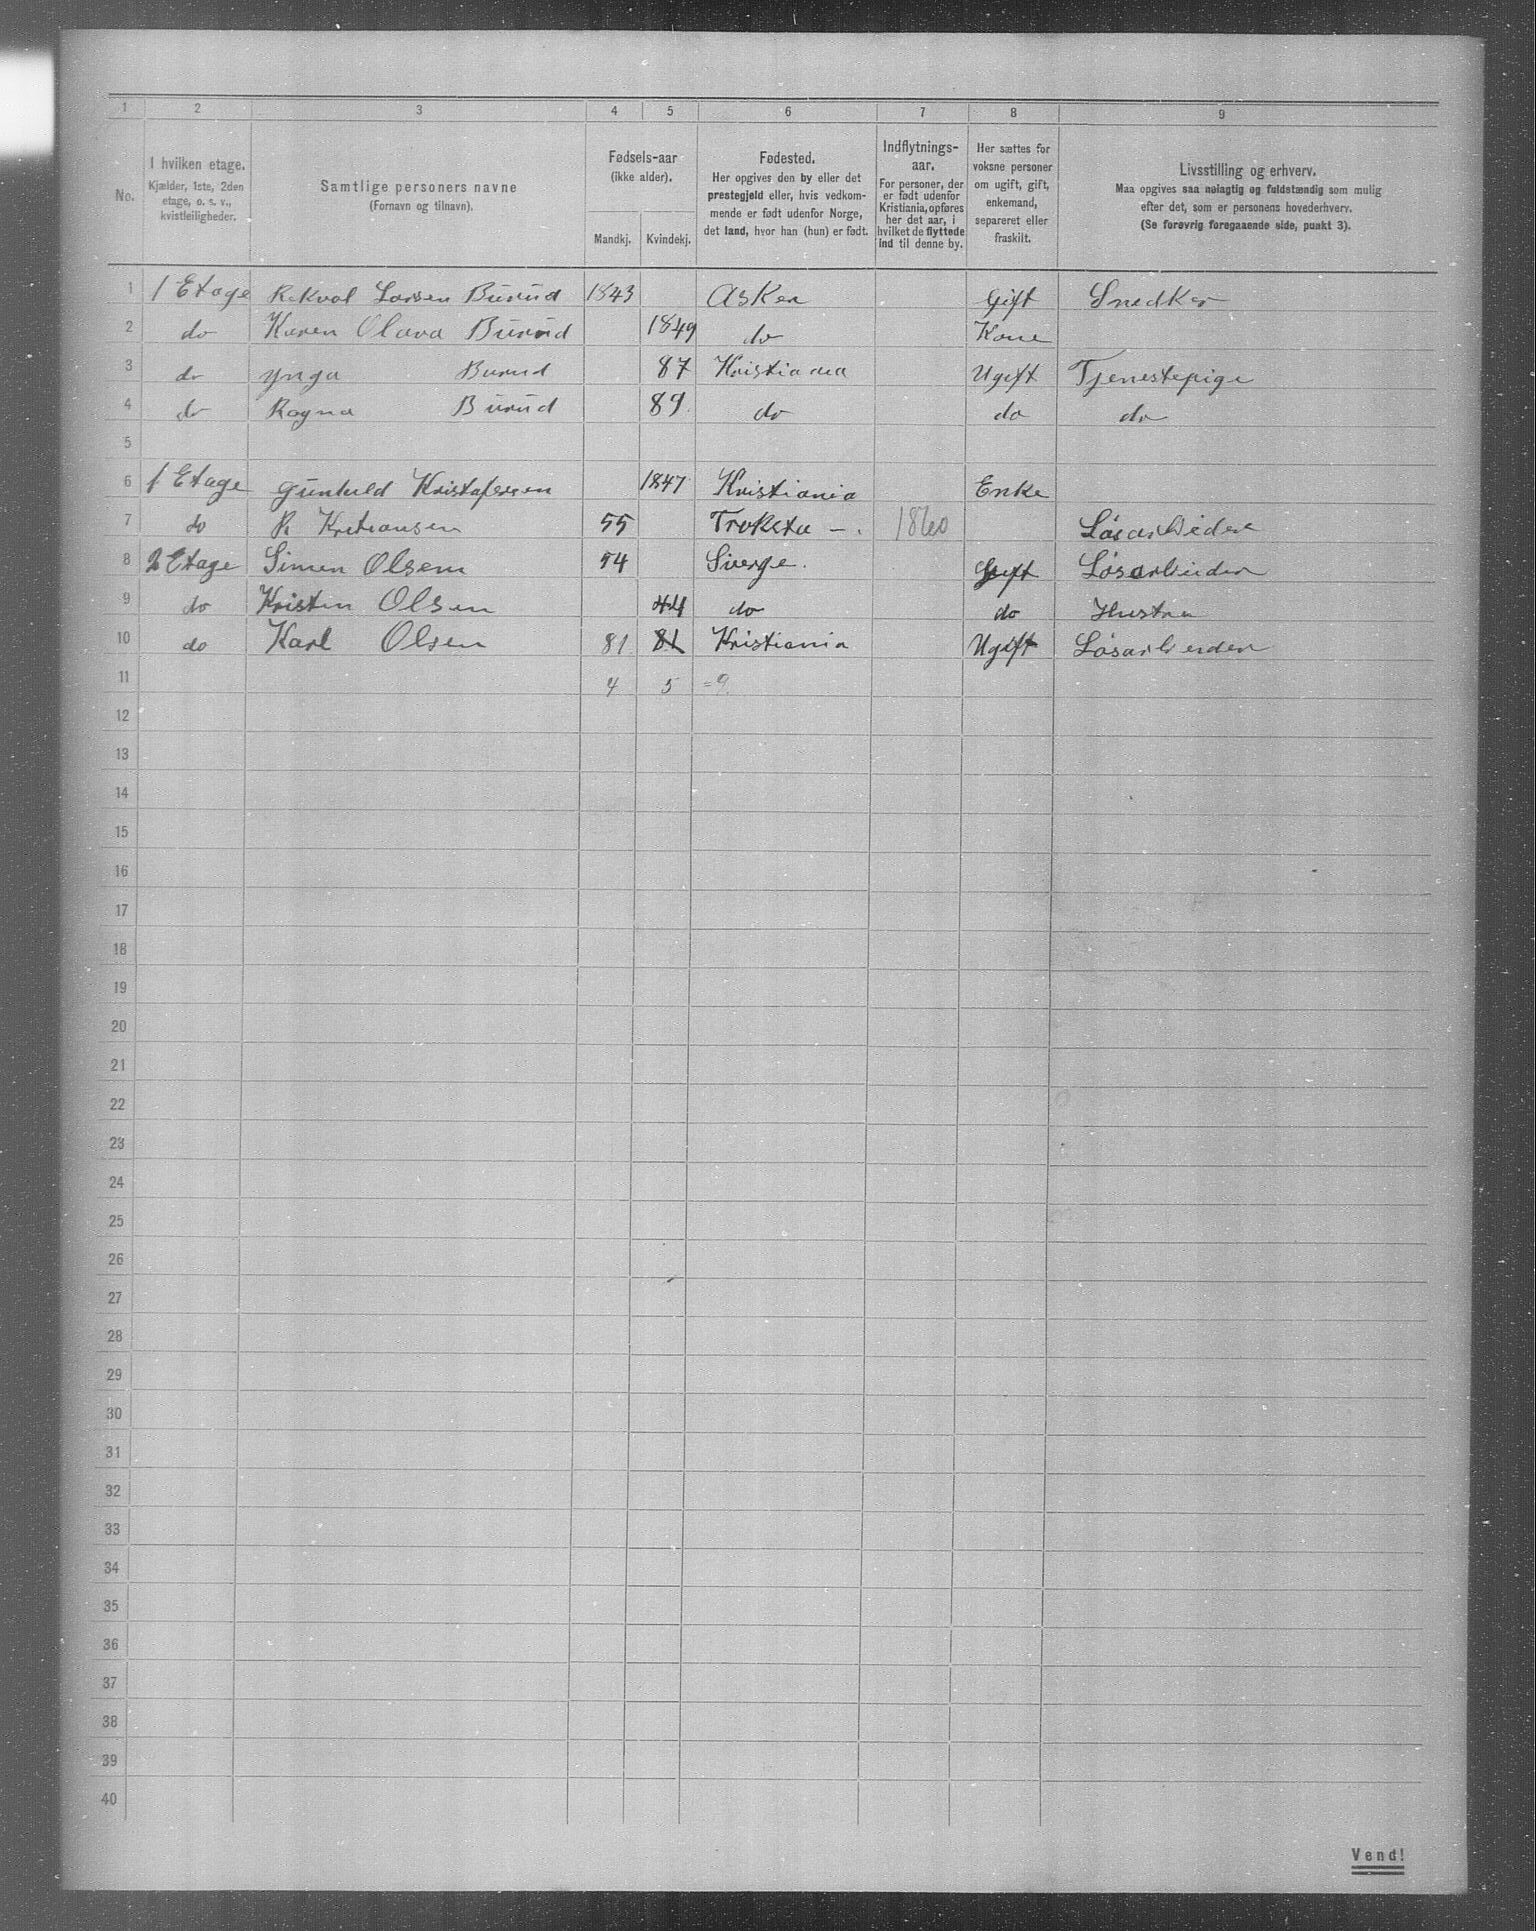 1 2 3 4 5 6 7 8 9
No. I hvilken etage. Kjælder, 1ste, 2den etage, o. s. v., kvistleiligheder. Samtlige personers navne (Fornavn og tilnavn). Fødsels-aar (ikke alder). Mandkj. Kvindekj. Fødested. Her opgives den by eller det prestegjeld eller, hvis vedkommende er født udenfor Norge, det land, hvor han (hun) er født. Indflytnings-aar. For personer, der er født udenfor Kristiania, opføres her det aar, i hvilket de flyttede ind til denne by. Her sættes for voksne personer om ugift, gift, enkemand, separeret eller fraskilt. Livsstilling og erhverv. Maa opgives saa nøiagtig og fuldstændig som mulig efter det, som er personens hovederhverv. (Se forøvrig foregaaende side, punkt 3).
1 1 Etage Larsen Burud 1843 Asker Gift Snedker
2 do Karen Olava Burud 1849 do Kone
3 do Ynga Burud 87 Kristiania Ugift Tjenestepige
4 do Ragna Burud 89. do do do
5
6 1 Etage Gunhild Kristofersen 1847 Kristiania Enke
7 do R Kristiansen 55 Trøkstu - . 1860 Løsarbeider
8 2 Etage Simen Olsem 54 Sverge. Gift Løsarbeider
9 do Kristin Olsen 44 do do Hustru
10 do Karl Olsen 81 81 Kristiania Ugift Løsarbeider
11 4 5 =9.
12
13
14
15
16
17
18
19
20
21
22
23
24
25
26
27
28
29
30
31
32
33
34
35
36
37
38
39
40
Vend!